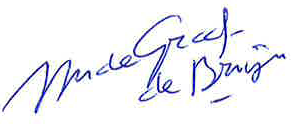 de Graaf
de Bruijn